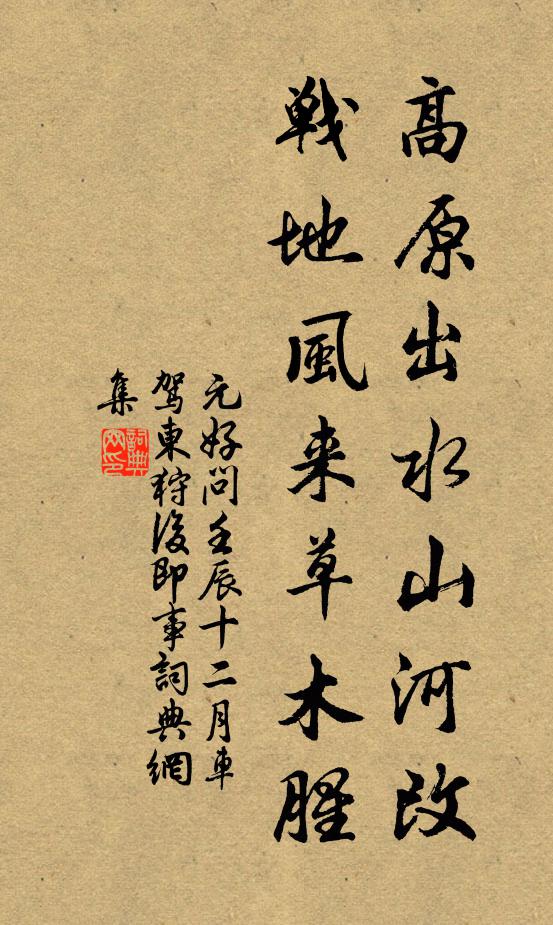 高原出水山河改
戰地風来草木腥
元好問壬辰十二月車
駕東狩後即事詞典網
集
詞典
网印